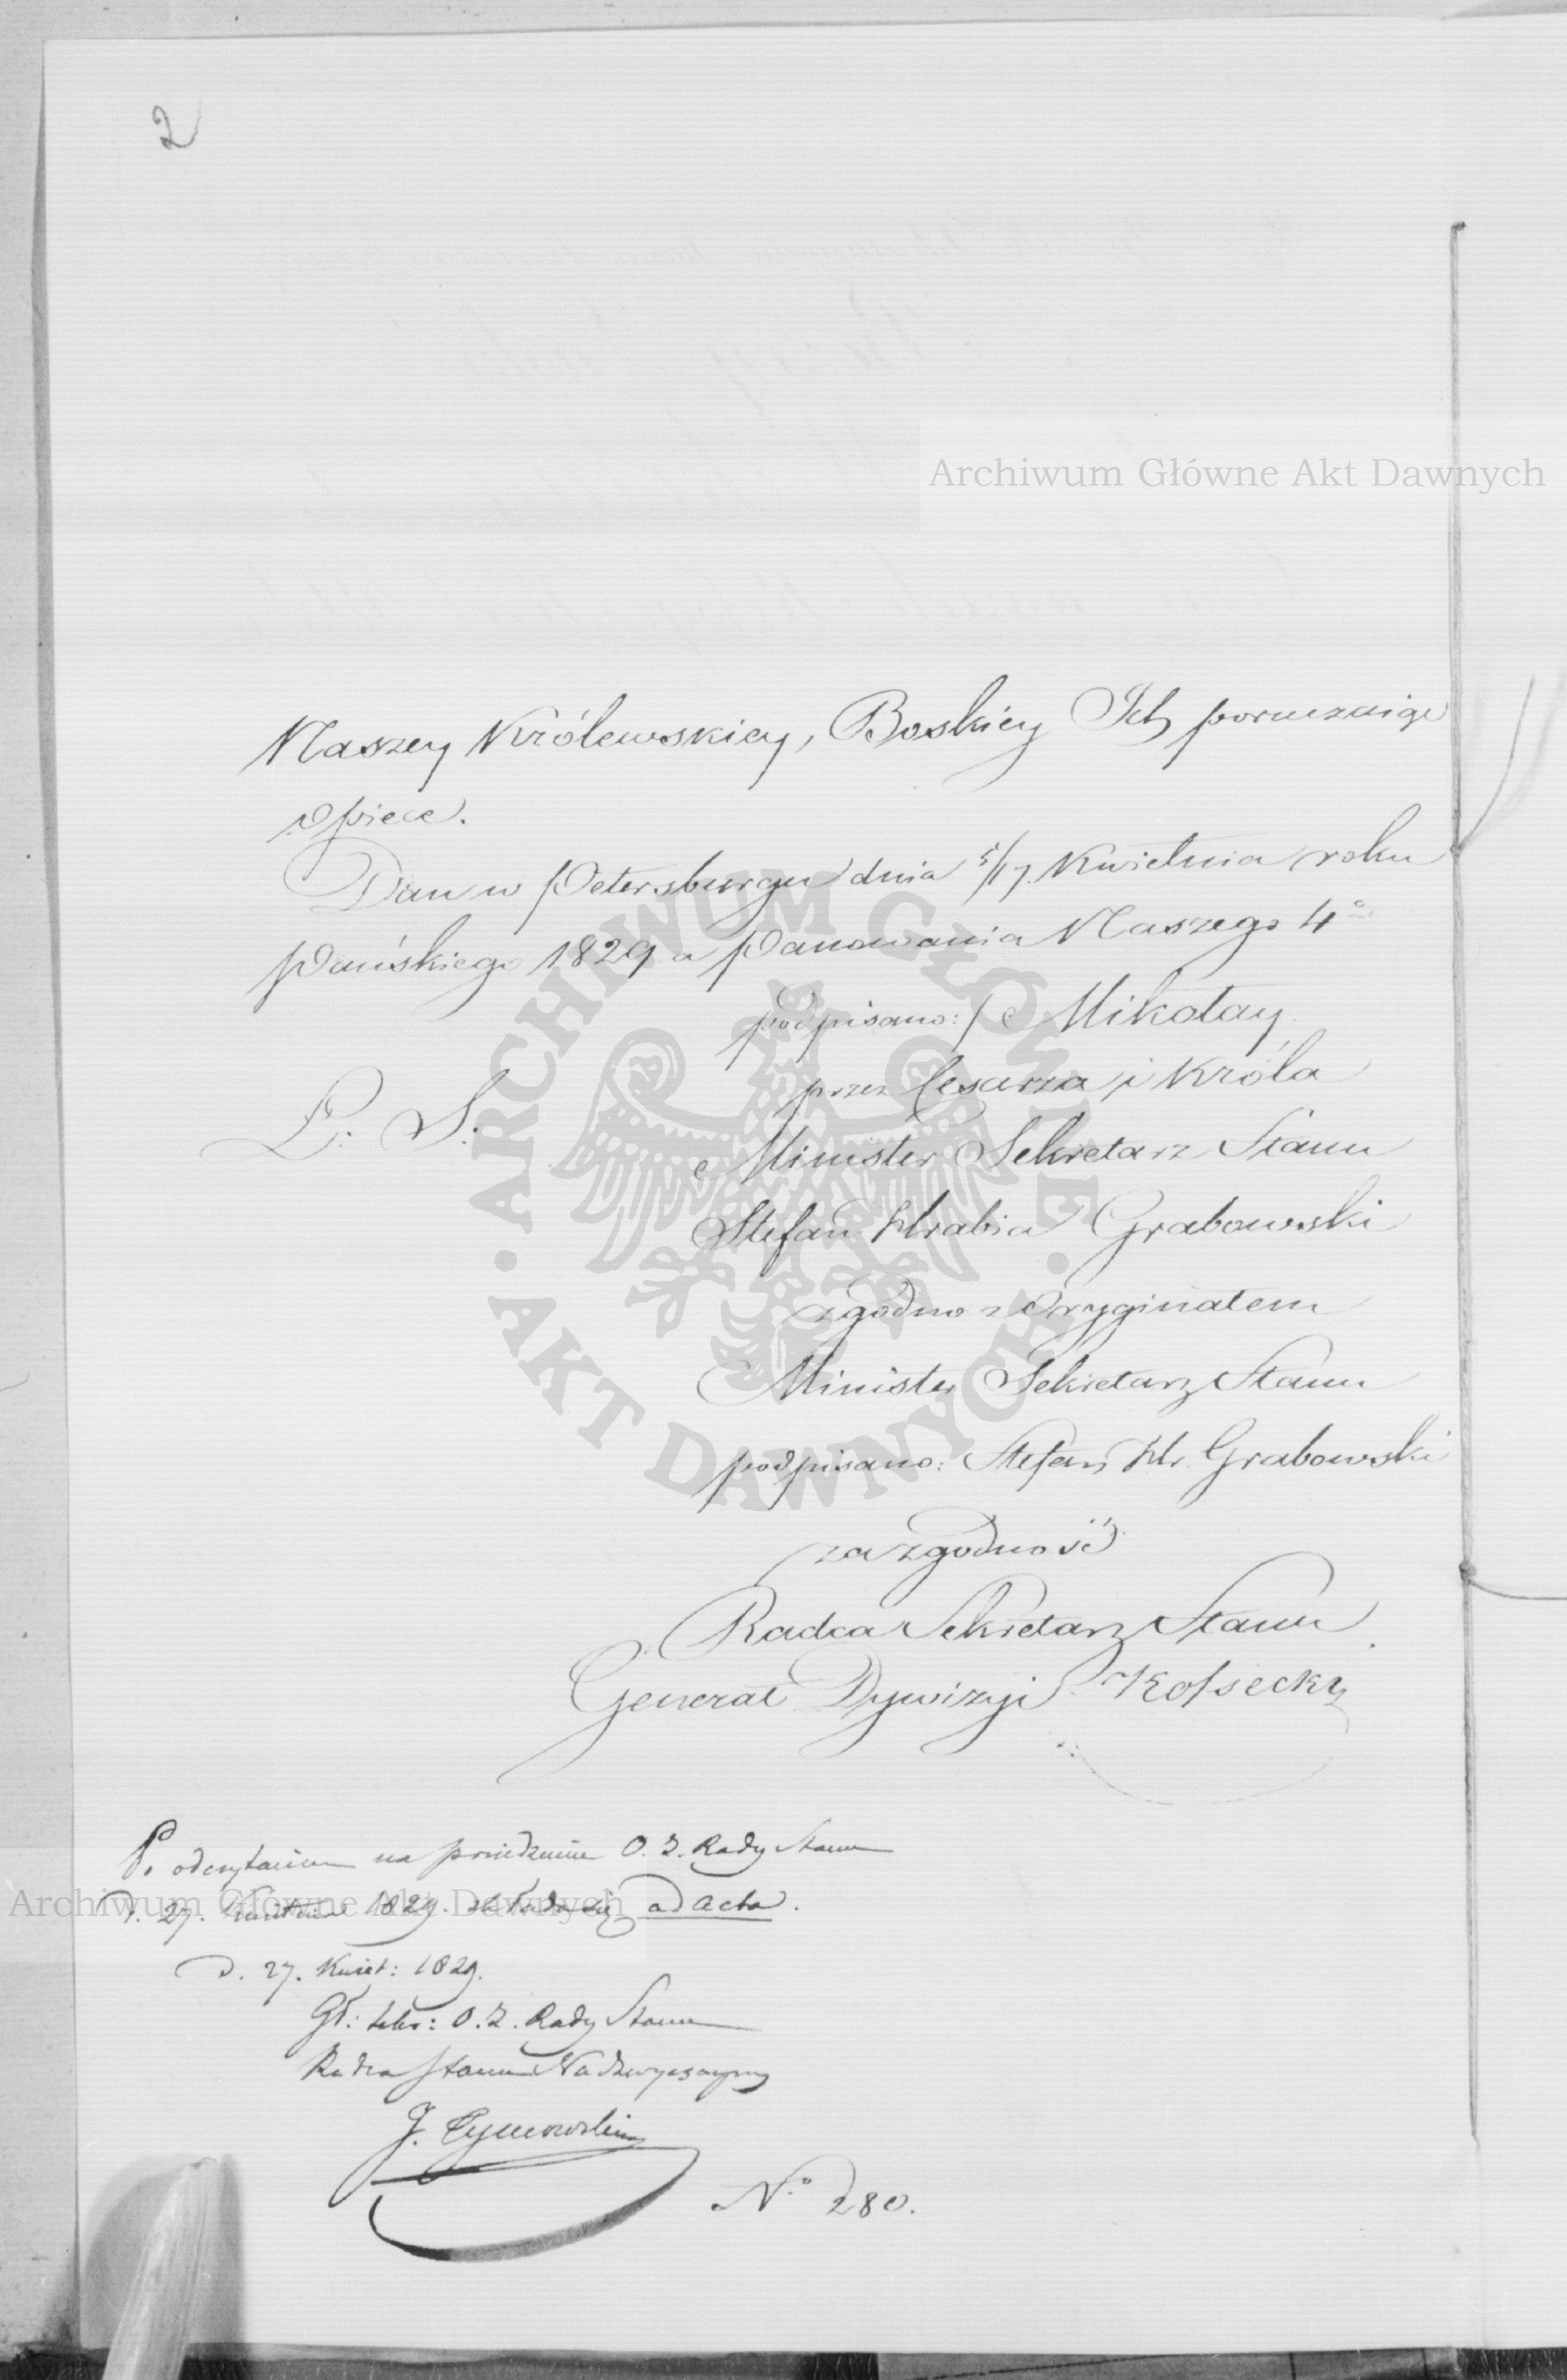 2
Archiwum Główne Akt Dawnych
Naszey Królewskiey, Boskiey Ich poruczaiąc
opiece.
Dan w Petersburgu dnia 5/17. Kwietnia roku
Pańskiego 1829 a Panowania Naszego 4º
podpisano:/ Mikołay
przez Cesarza i Króla
L. S.
Minister Sekretarz Stanu
Stefan Hrabia Grabowski
zgodno z Oryginałem
Minister Sekretarz Stanu
podpisano: Stefan Hr Grabowski
za zgodność
Radca Sekretarz Stanu
Generał Dywizyi Kossecky
Po odczytaniu na posiedzeniu O. Z. Rady Stanu
D. 27. Kwietnia 1829. składa się ad acta.
Archiwum Główne Akt Dawnych
D. 27. Kwiet: 1829.
Gł: Sekr: O. Z. Rady Stanu
Radca Stanu Nadzwyczayny
J. Tymowski
Nº 280.
ARCHIWUM GŁÓWNE
AKT DAWNYCH